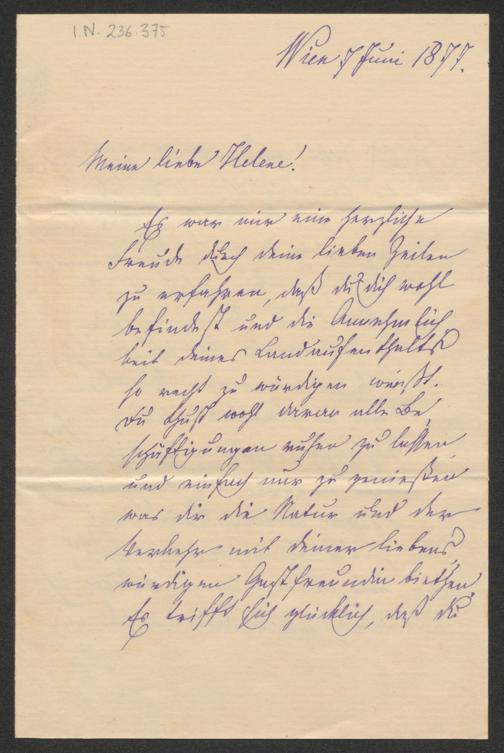 I.N. 236.375
Wien 7 Juni 1877.
Meine liebe Helene!
Es war mir eine herzliche
Freude durch deine lieben Zeilen
zu erfahren, daß du dich wohl
befindest und die Annehmlich
keit deines Landaufenthalts
so recht zu würdigen weißt.
Du thust wohl daran alle Be
schäftigungen ruhen zu lassen
und einfach nur zu genießen
was dir die Natur und der
Verkehr mit deiner liebens
würdigen Gastfreundin biethen.
Es trifft sich glücklich, daß du